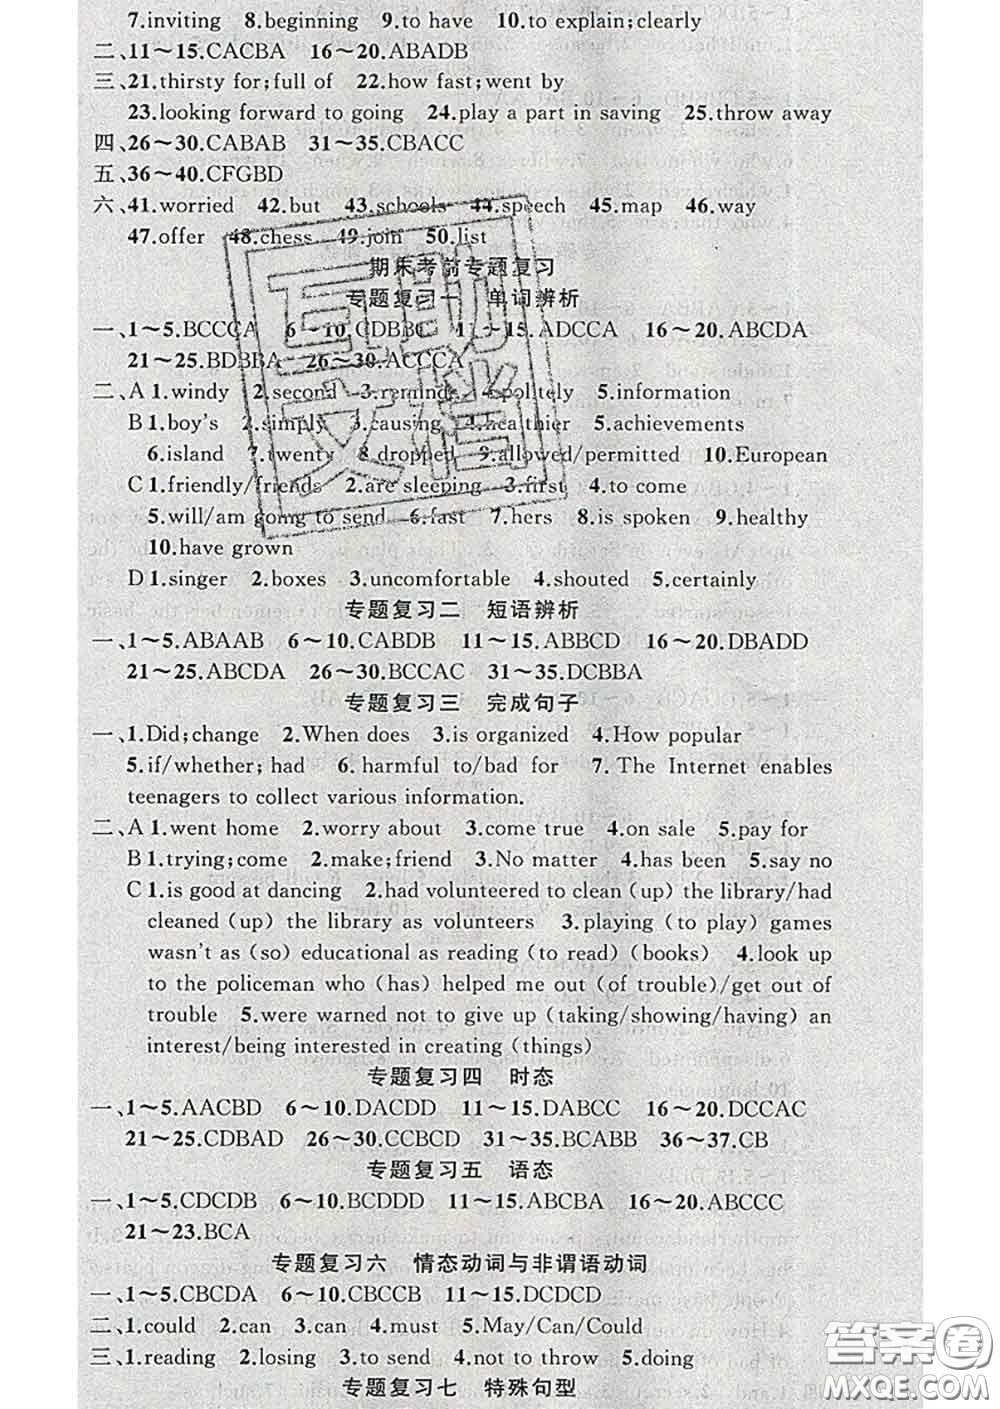 7.inviting 8.beginning 9.to have 10.to explain;clearly
二、11～15.CACBA 16～20.ABADB
三、21.thirsty for;full of 22.how fast;went by
23.looking forward to going 24.play a part in saving 25.throw away
四、26～30.CABAB 31～35.CBACC
五、36～40.CFGBD
六、41.worried 42.but 43.schools 44.speech 45.map 46.way
47.offer 48.chess 49.join 50.list
期末考前专题复习
专题复习一 单词辨析
一、1～5.BCCCA 6～10.CDBBC 11～15.ADCCA 16～20.ABCDA
21～25.BDBBA 26～30.ACCCA
二、A 1.windy 2.second 3.reminds 4.politely 5.information
B 1.boy's 2.simply 3.causing 4.healthier 5.achievements
6.island 7.twenty 8.dropped 9.allowed/permitted 10.European
C 1.friendly/friends 2.are sleeping 3.first 4.to come
5.will/am going to send 6.fast 7.hers 8.is spoken 9.healthy
10.have grown
D 1.singer 2.boxes 3.uncomfortable 4.shouted 5.certainly
专题复习二 短语辨析
一、1～5.ABAAB 6～10.CABDB 11～15.ABBCD 16～20.DBADD
21～25.ABCDA 26～30.BCCAC 31～35.DCBBA
专题复习三 完成句子
一、1.Did;change 2.When does 3.is organized 4.How popular
5.if/whether; had 6. harmful to/bad for 7. The Internet enables
teenagers to collect various information.
二、A 1.went home 2.worry about 3.come true 4.on sale 5.pay for
B 1.trying;come 2.make;friend 3.No matter 4.has been 5.say no
C 1.is good at dancing 2.had volunteered to clean (up) the library/had
cleaned (up) the library as volunteers 3.playing (to play) games
wasn't as (so) educational as reading (to read) (books) 4.look up
to the policeman who (has) helped me out (of trouble)/get out of
trouble 5.were warned not to give up (taking/showing/having) an
interest/being interested in creating (things)
专题复习四 时态
一、1～5.AACBD 6～10.DACDD 11～15.DABCC 16～20.DCCAC
21～25.CDBAD 26～30.CCBCD 31～35.BCABB 36～37.CB
专题复习五 语态
一、1～5.CDCDB 6～10.BCDDD 11～15.ABCBA 16～20.ABCCC
21～23.BCA
专题复习六 情态动词与非谓语动词
一、1～5.CBCDA 6～10.CBCCB 11～15.DCDCD
二、1.could 2.can 3.can 4.must 5.May/Can/Could
三、1.reading 2.losing 3.to send 4.not to throw 5.doing
专题复习七 特殊句型
互助文档
答案圈
MXQE.COM